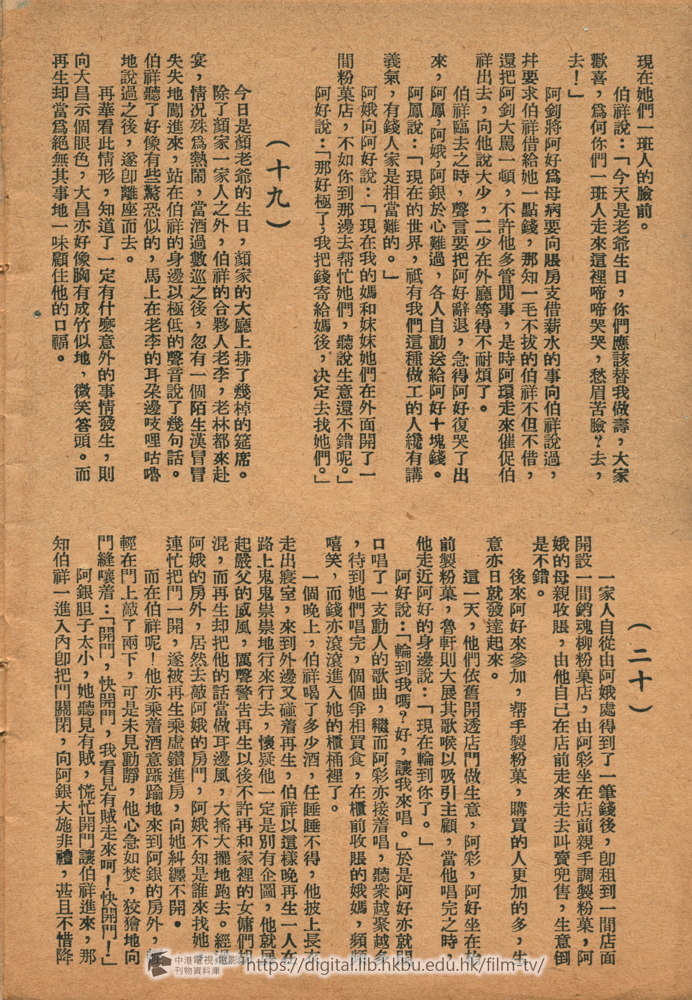 現在她們一班人的臉前。
伯祥說：「今天是老爺生日，你們應該替我做壽，大家
歡喜，爲何你們一班人走來這裡啼啼哭哭，愁眉苦臉？去，
去！」
阿釗將阿好爲母病要向賬房支借薪水的事向伯祥說過，
幷要求伯祥借給她一點錢，那知一毛不拔的伯祥不但不借，
還把阿釗大罵一頓，不許他多管閒事，是時阿環走來催促伯
祥出去，向他說大少，二少在外廳等得不耐煩了。
伯祥臨去之時，聲言要把阿好辭退，急得阿好復哭了出
來，阿鳳，阿娥，阿銀於心難過，各人自動送給阿好十塊錢。
阿鳳說：「現在的世界，祇有我們這種做工的人纔有講
義氣，有錢人家是相當難的。」
阿娥向阿好說：「現在我的媽和妹妹她們在外面開了一
間粉菓店，不如你到那邊去帮忙她們，聽說生意還不錯呢。」
阿好說：「那好極了，我把錢寄給媽後，决定去找她們。」
（十九）
今日是顏老爺的生日，顏家的大廳上排了幾棹的筵席。
除了顏家一家人之外，伯祥的合夥人老李，老林都來赴
宴，情況殊爲熱鬧，當酒過數巡之後，忽有一個陌生漢冒冒
失失地闖進來，站在伯祥的身邊以極低的聲音說了幾句話。
伯祥聽了好像有些驚恐似的，馬上在老李的耳朶邊吱哩咕嚕
地說過之後，遂卽離座而去。
再華看此情形，知道了一定有什麽意外的事情發生，則
向大昌示個眼色，大昌亦好像胸有成竹似地，微笑答頭。而
再生却當爲絕無其事地一味顧住他的口福。
（二十）
一家人自從由阿娥處得到了一筆錢後，卽租到一間店面
開設一間銷魂柳粉菓店，由阿彩坐在店前親手調製粉菓，阿
娥的母親收賬，由他自己在店前走來走去叫賣兜售，生意倒
是不錯。
後來阿好來參加，帮手製粉菓，購買的人更加的多，生
意亦日就發達起來。
這一天，他們依舊開透店門做生意，阿彩，阿好坐在
前製粉菓，魯軒則大展其歌喉以吸引主顧，當他唱完之時，
他走近阿好的身邊說：「現在輪到你了。」
阿好說：「輪到我嗎？好，讓我來唱。」於是阿好亦就開
口唱了一支動人的歌曲，繼而阿彩亦接着唱，聽衆越聚越多
，待到她們唱完，個個爭相買食，在櫃前收賬的娥媽，頻頻
嘻笑，而錢亦滾滾進入她的櫃桶裡了。
一個晚上，伯祥喝了多少酒，任睡睡不得，他披上長衣
走出寢室，來到外邊又碰着再生，伯祥以這樣晚再生一人在
路上鬼鬼祟祟地行來行去，懷疑他一定是別有企圖，他就展
起嚴父的威風，厲聲警吿再生以後不許再和家裡的女傭們胡
混，而再生却把他的話當做耳邊風，大搖大擺地跑去。經過
阿娥的房外，居然去敲阿娥的房門，阿娥不知是誰來找她，
連忙把門一開，遂被再生乘虛鑽進房，向她糾纒不開。
而在伯祥呢！他亦乘着酒意躡踰地來到阿銀的房外，
輕在門上敲了兩下，可是未見動靜，他心急如焚，狡獪地向
門縫嚷着：「開門，快開門，我看見有賊走來呵！快開門！」
阿銀胆子太小，她聽見有賊，慌忙開門讓伯祥進來，那
知伯祥一進入內卽把門關閉，向阿銀大施非禮，甚且不惜降
中港電視·電影
刊物資料庫
https://digital.lib.hkbu.edu.hk/film-tv/